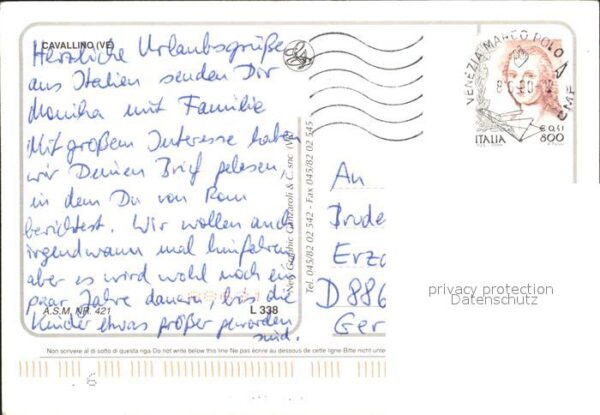 CAVALLINO (VE)
Herzliche Urlaubsgrüße
aus Italien senden Dir
Monika mit Familie
Mit großem Interesse haben
wir Deinen Brief gelesen,
in dem Du von Rom
berichtest. Wir wollen auch
irgendwann mal hinfahren
aber es wird wohl noch ein
paar Jahre dauern, bis die
Kinder etwas größer geworden
sind.
A.S.M. NR. 421
L 338
Non scrivere al di sotto di questa riga Do not write below this line Ne pas écrire au dessous de cette ligne Bitte nicht unter
6
Neo Graphic Ganzaroli & C. snc
Tel. 045/82 02 542 - Fax 045/82 02 545
VENEZIA MARCO POLO
CMP
€ 0,41
800
ITALIA
An
Brude
Erzo
D 886
Ger
privacy protection
Datenschutz